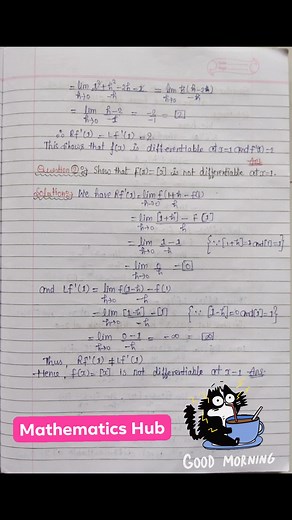 = lim 1²+h²-2h-1 = lim h(h-2)
h→0 -h h→0 -h
= lim h-2 = -2 = [2]
h→0 -1 -1
∴ Rf'(1) = Lf'(1) = 2
This shows that f(x) is differentiable at x=1 and f'(1)=2
Ans
Question: Show that f(x)=[x] is not differentiable at x=1.
Solution: We have Rf'(1)=lim f(1+h)-f(1)
h→0 h
= lim [1+h] - f(1)
h→0 h
= lim 1-1 {∵ [1+h]=1 and [1]=1}
h→0 h
= lim 0 = [0]
h→0 h
and Lf'(1) = lim f(1-h) - f(1)
h→0 -h
= lim [1-h] - [1] {∵ [1-h]=0 and [1]=1}
h→0 -h
= lim 0-1 = -∞ = [∞]
h→0 -h
Thus, Rf'(1) ≠ Lf'(1)
Hence, f(x)=[x] is not differentiable at x=1 Ans
Mathematics Hub
GOOD MORNING